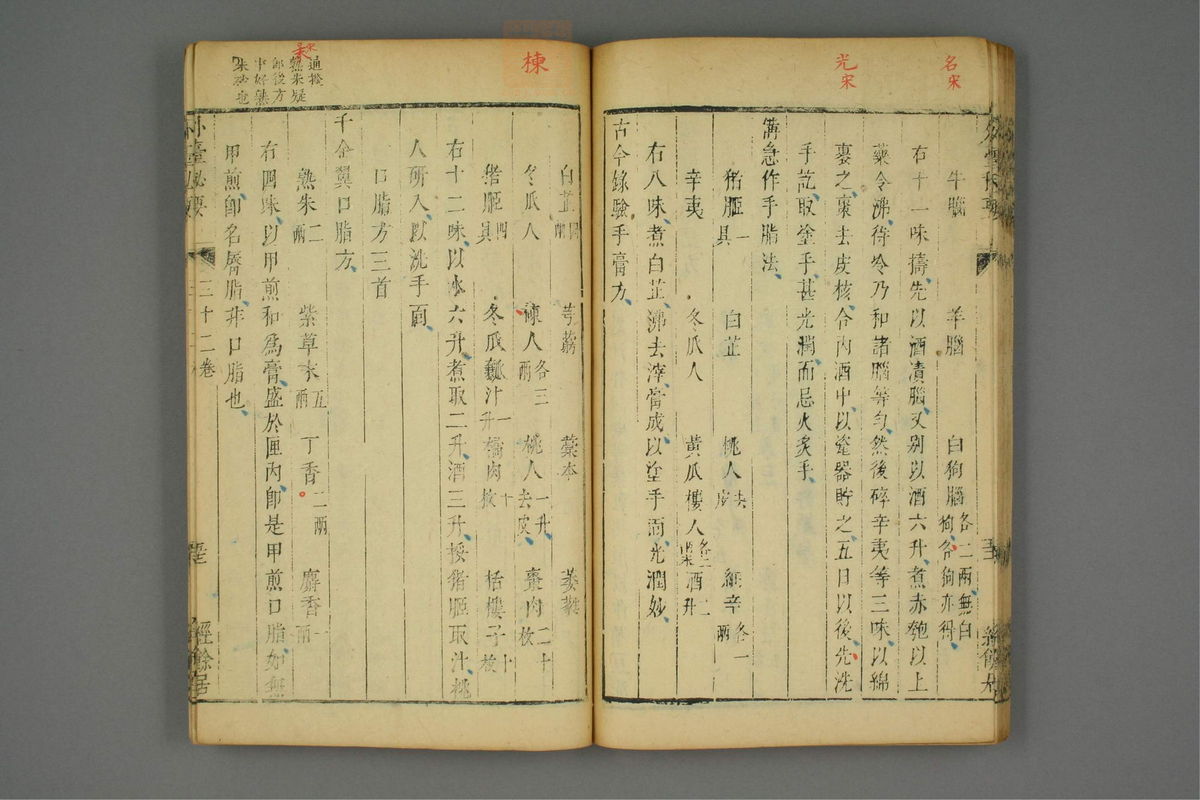 名宋
光宋
牛腦 羊腦 白狗腦各二兩無白狗各狗亦得
右十一味擣先以酒漬腦又别以酒六升煮赤匏以上
藥令沸待冷乃和諸腦等勻然後碎辛夷等三味以綿
裹之棗去皮核合內酒中以瓷器貯之五日以後先洗
手訖取塗手甚光潤而忌火炙手
備急作手脂法
猪胵一具 白芷 桃人去皮 細辛各一兩
辛夷 冬瓜人 黃瓜樓人各二兩 酒二升
右八味煮白芷沸去滓膏成以塗手面光潤妙
古今錄驗手膏方
棟
白芷四兩 芎藭 藁本 葳蕤
冬瓜人 楝人各三兩 桃人一升去皮 棗肉二十枚
猪胵四具 冬瓜瓤汁一升 橘肉十枚 栝樓子十枚
右十二味以水六升煮取二升酒三升挼猪胵取汁桃
人研入以洗手面
口脂方三首
千金翼口脂方
熟朱二兩 紫草末五兩 丁香二兩 麝香一兩
右四味以甲煎和爲膏盛於匣內卽是甲煎口脂如無
甲煎卽名脣脂非口脂也
熟朱疑
郎後方
中好熟
朱砂也
外臺秘要
三十二卷
經餘居